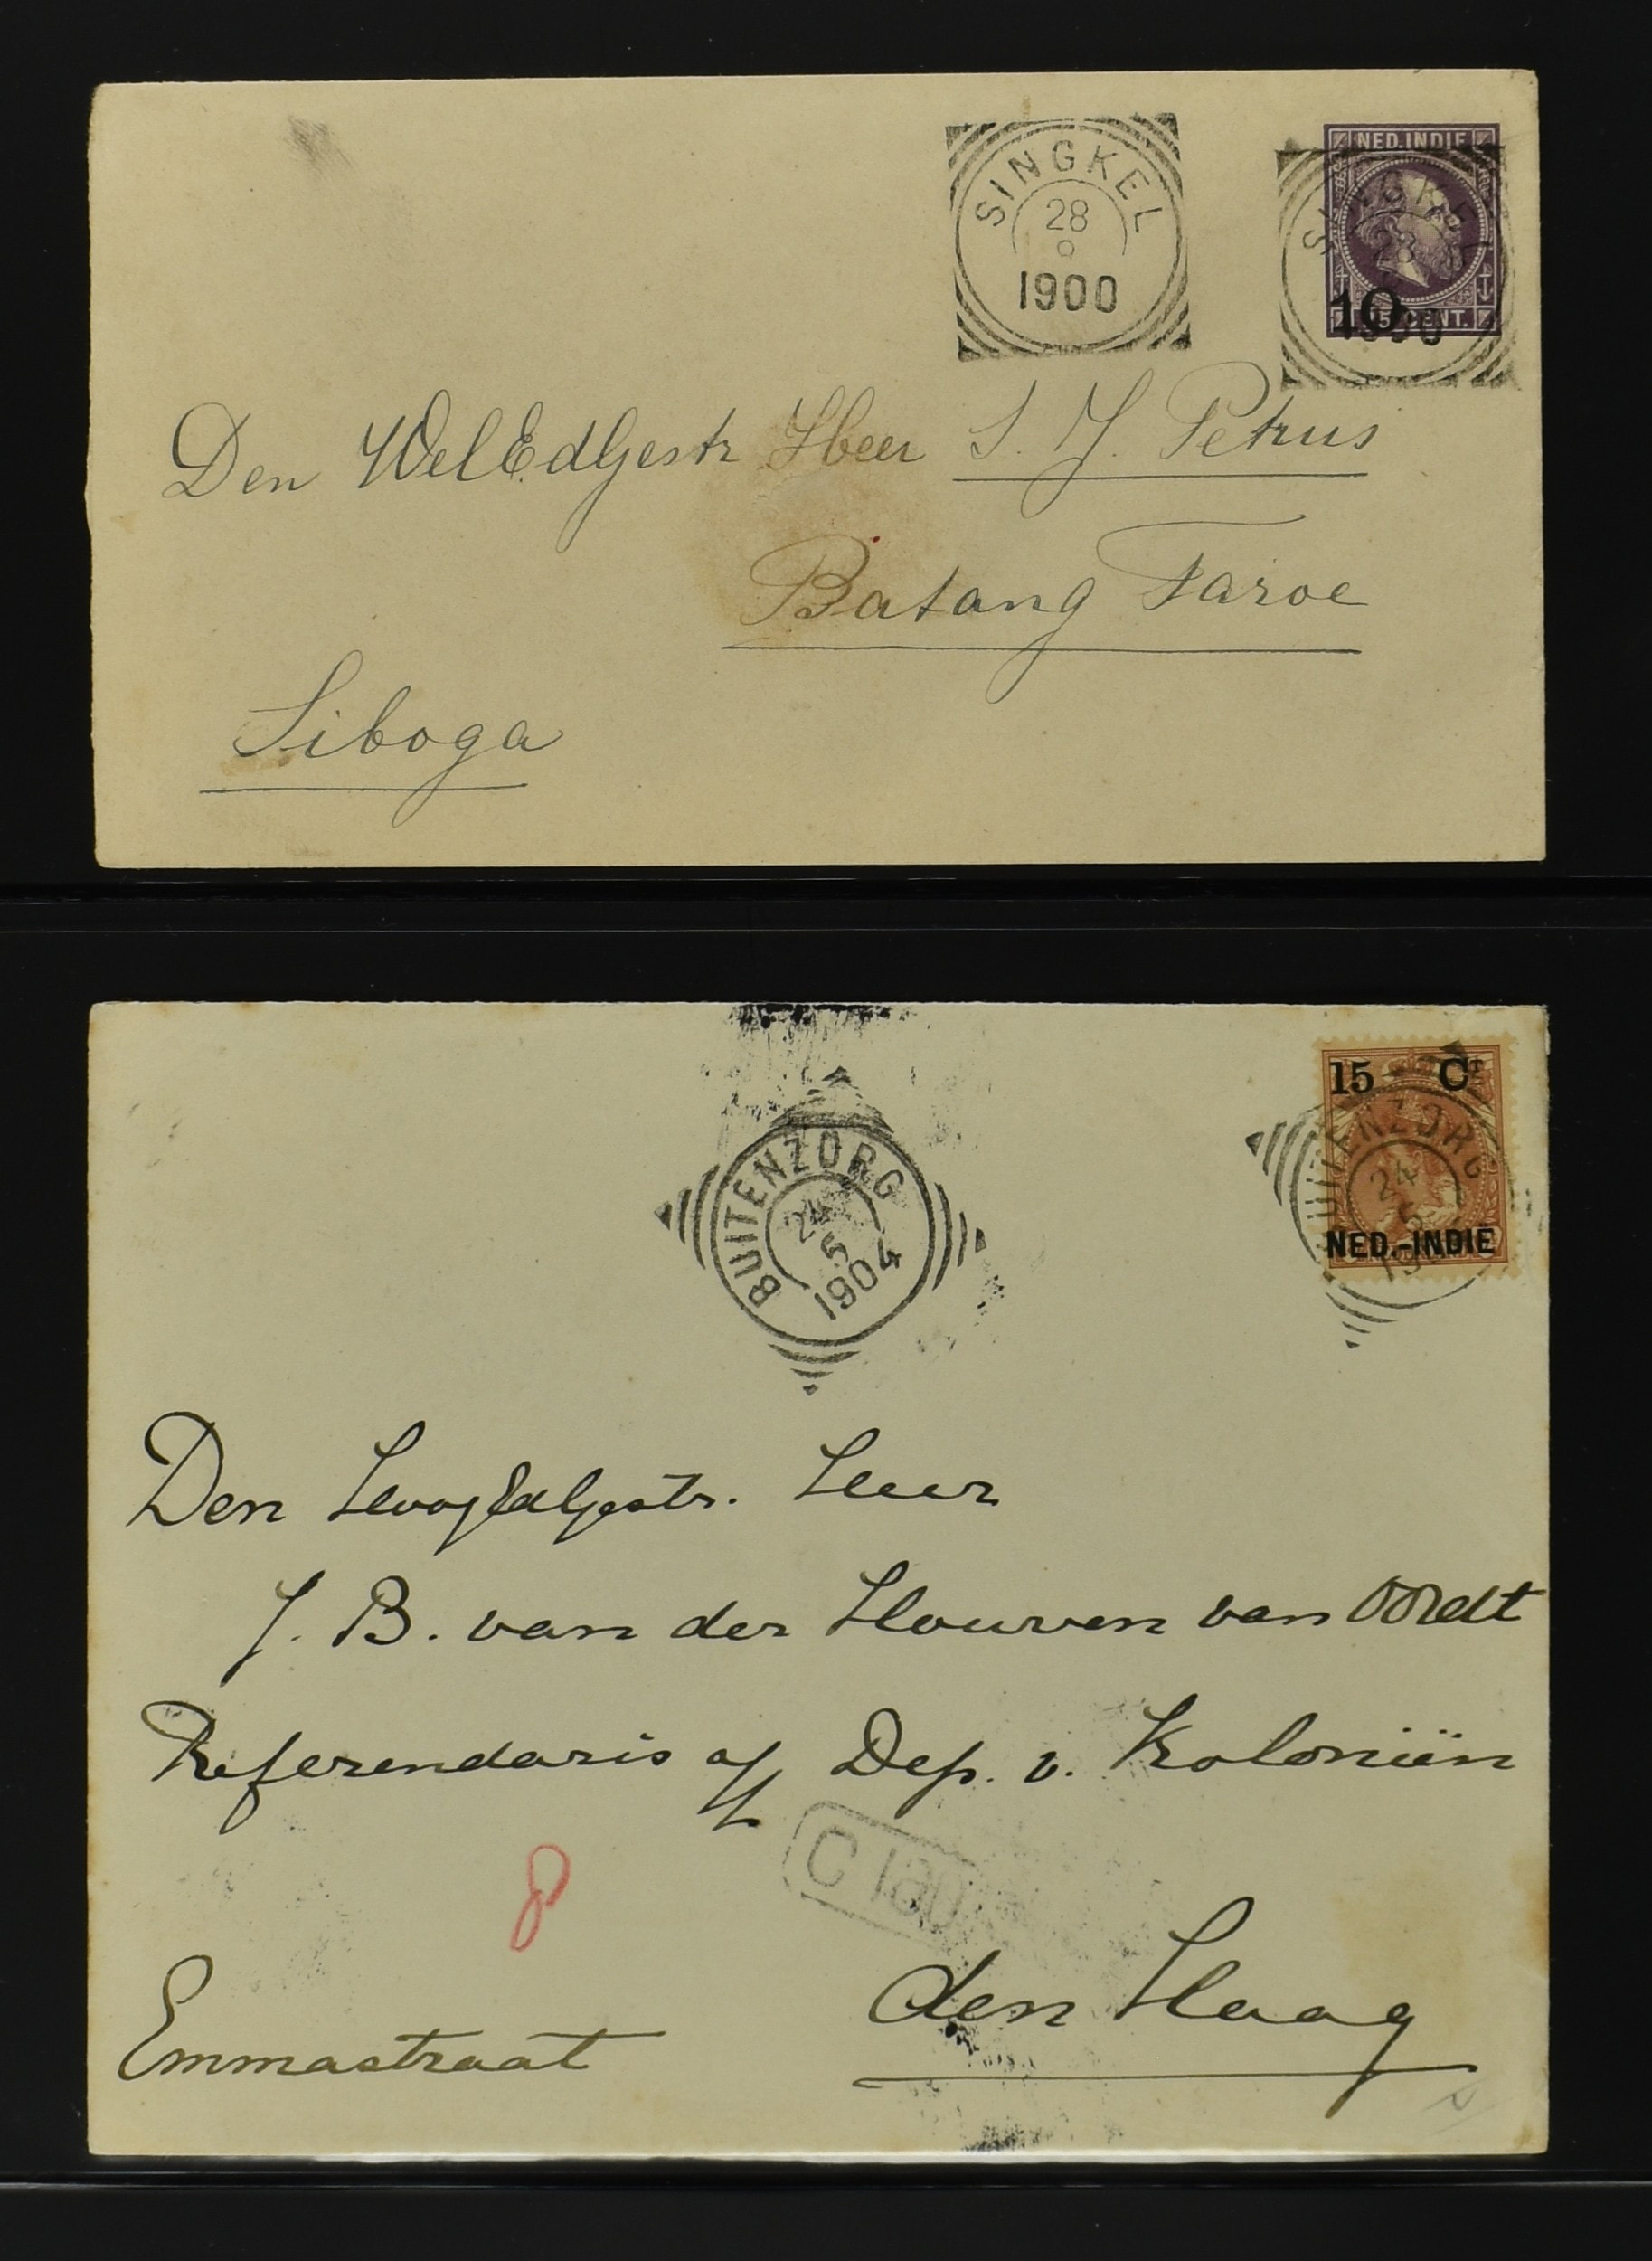 SINGKEL
28
8
1900
NED. INDIE
SINGKEL
28
10
15 CENT.
Den WelEdGestr Heer S. J. Petrus
Batang Taroe
Siboga
BUITENZORG
24
5
1904
15 Ct
BUITENZORG
24
5
NED.-INDIE
Den HoogEdGestr. Heer
J. B. van der Houven van Oordt
Referendaris a/h Dep. v. Koloniën
8
den Haag
Emmastraat